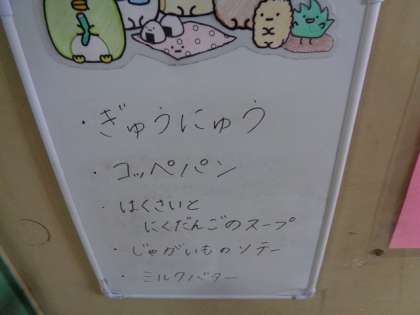 ・ぎゅうにゅう
・コッペパン
・はくさいと
にくだんごのスープ
・じゃがいものソテー
・ミルクバター